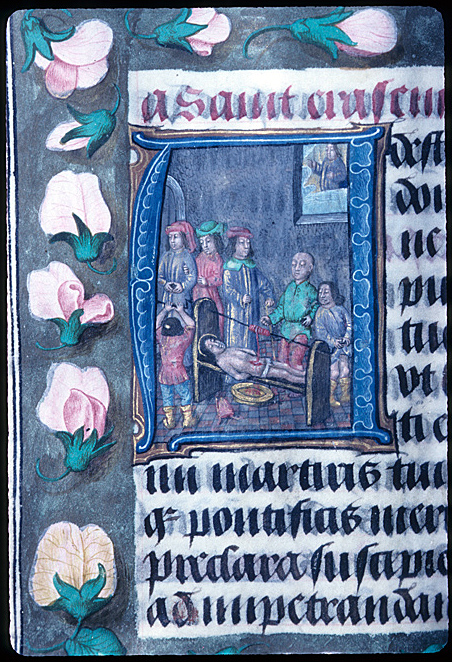 a Saint erasem
D
dest
don
ne
pu
tu
vt
iti
mi martiris tui
qz pontificis mer
preclara suscipie
ad impetrandu